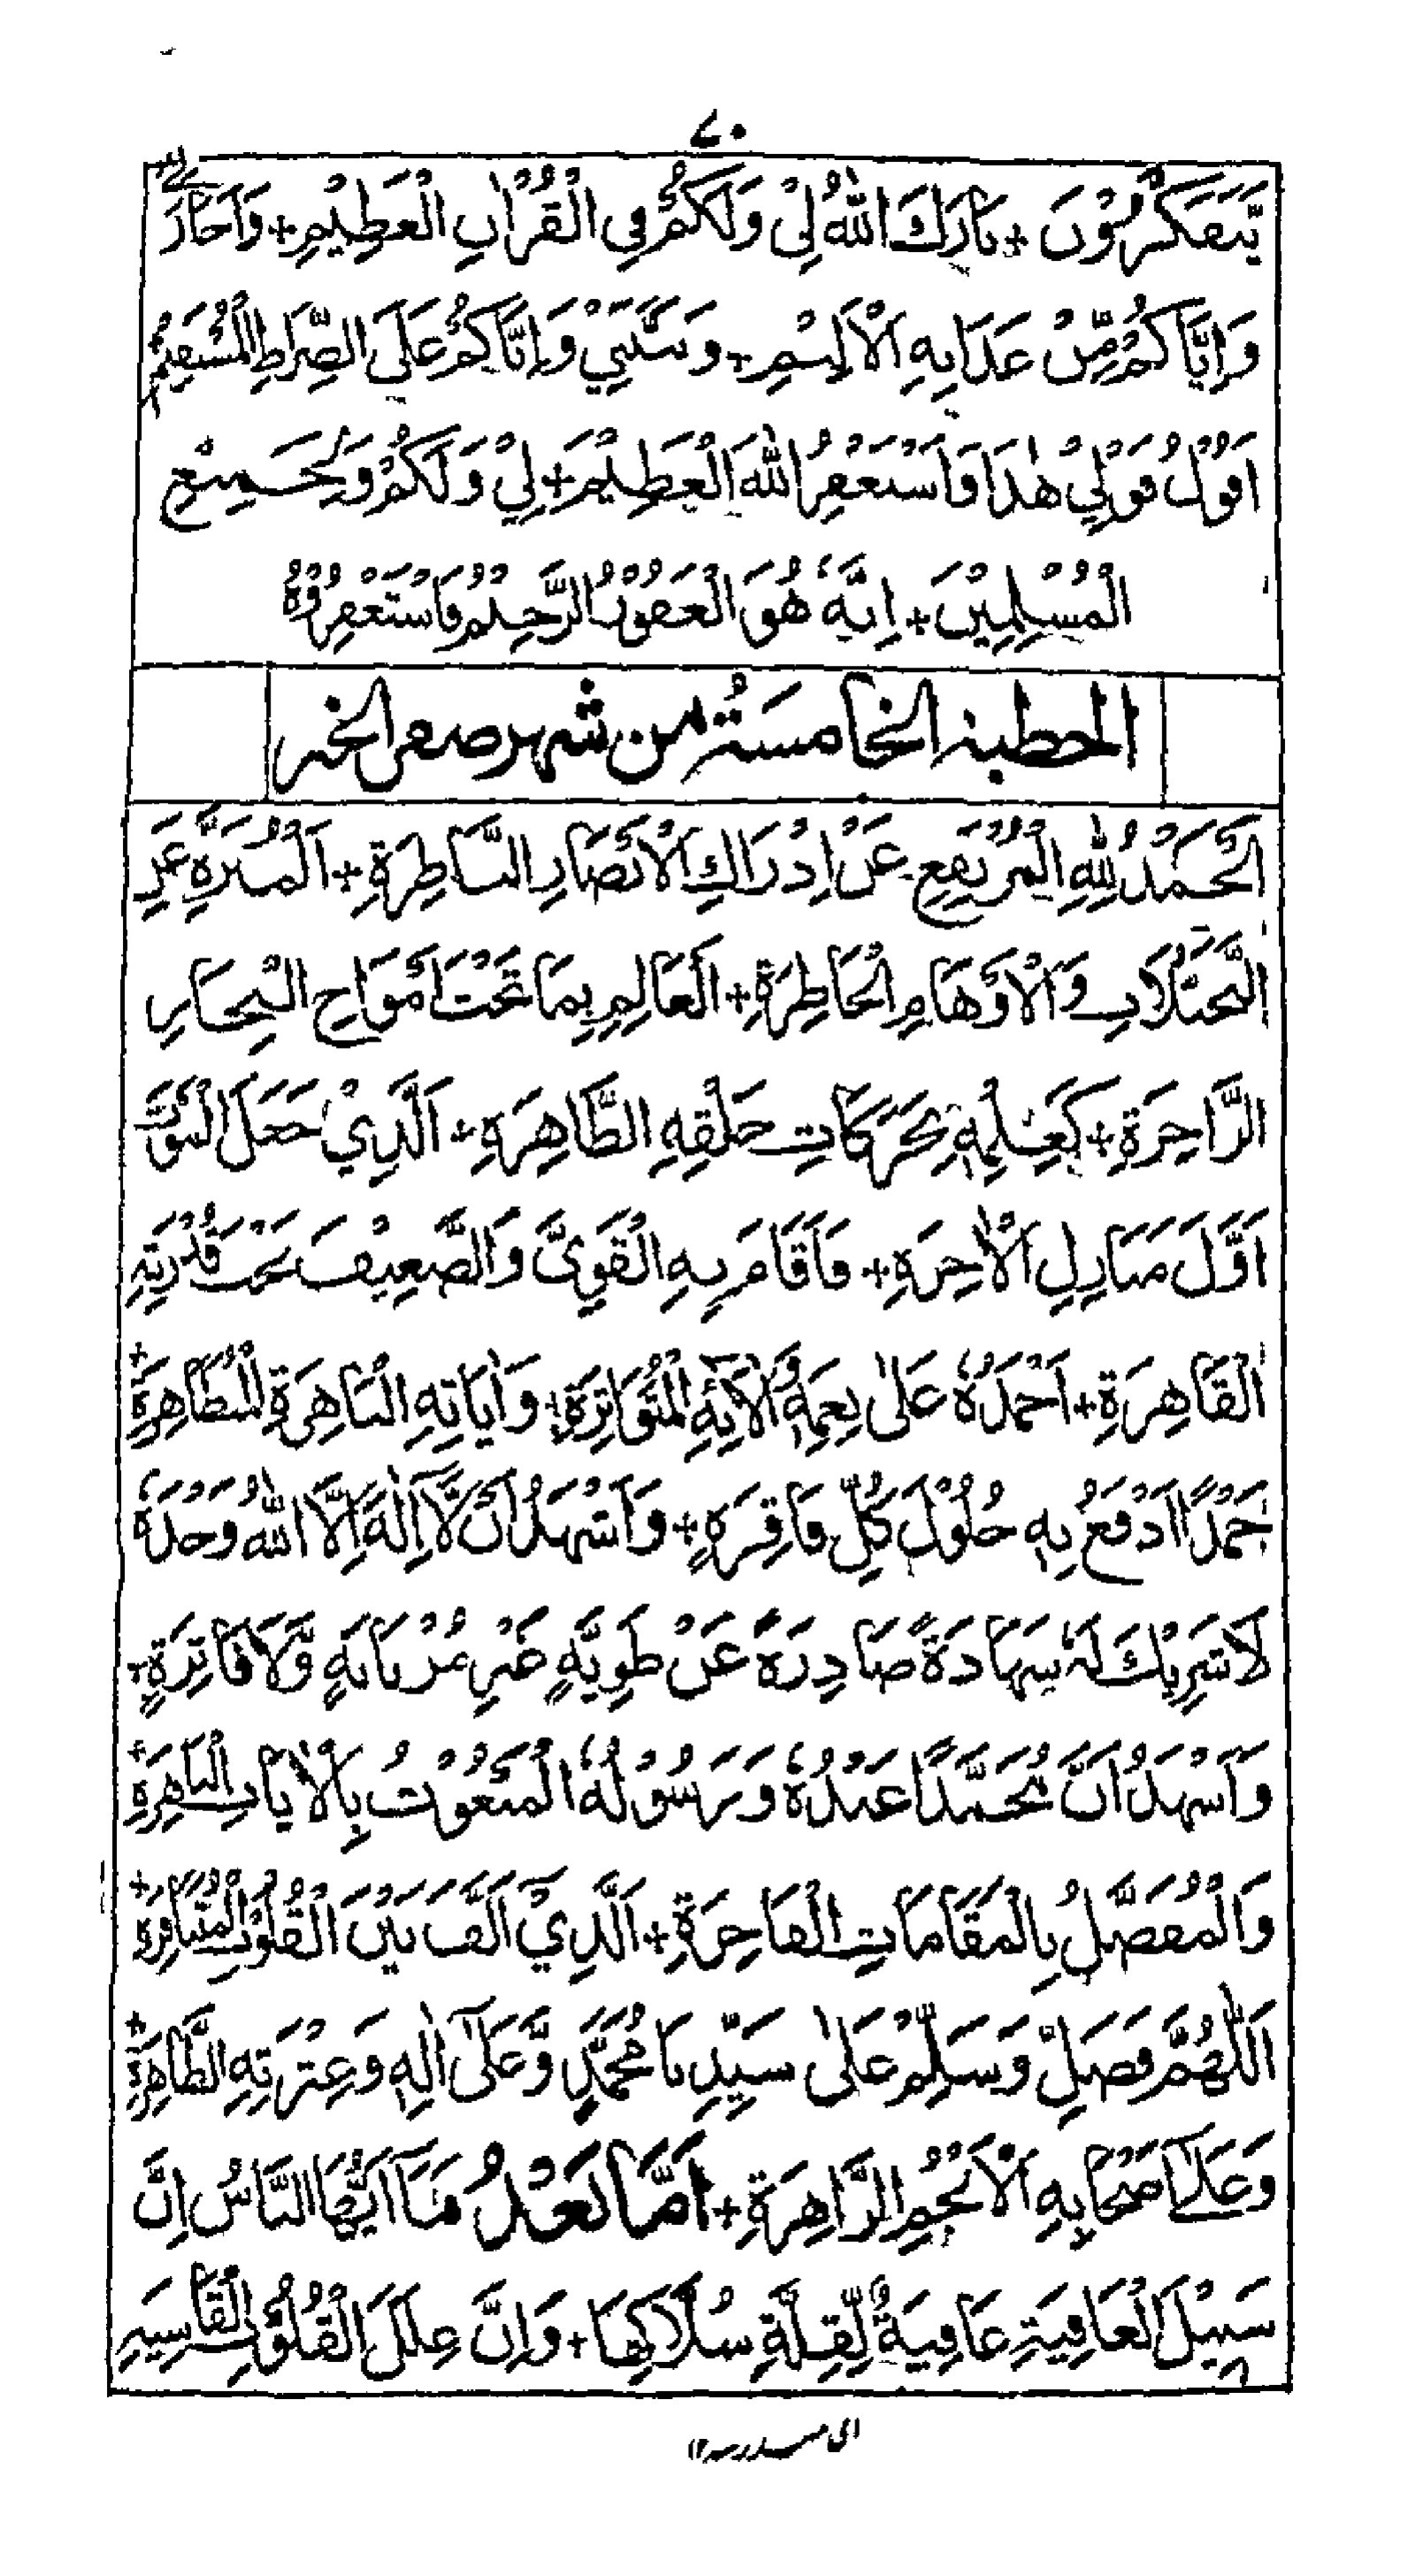 ٧٠
يَتَفَكَّرُوْنَ + بَارَكَ اللّٰهُ لِيْ وَلَكُمْ فِي الْقُرْاٰنِ الْعَظِيْمِ + وَاَجَارَنِيْ
وَاِيَّاكُمْ مِّنْ عَذَابِهِ الْاَلِيْمِ + وَثَبَّتَنِيْ وَاِيَّاكُمْ عَلَى الصِّرَاطِ الْمُسْتَقِيْمِ
اَقُوْلُ قَوْلِيْ هٰذَا وَاَسْتَغْفِرُ اللّٰهَ الْعَظِيْمَ + لِيْ وَلَكُمْ وَلِجَمِيْعِ
الْمُسْلِمِيْنَ + اِنَّهٗ هُوَ الْغَفُوْرُ الرَّحِيْمُ فَاسْتَغْفِرُوْهُ
الخطبة الخامسةُ من شهر صفر الخير
اَلْحَمْدُ لِلّٰهِ الْمُرْتَفِعِ عَنْ اِدْرَاكِ الْاَبْصَارِ النَّاظِرَةِ + اَلْمُنَزَّهِ عَنِ
التَّخَيُّلَاتِ وَالْاَوْهَامِ الْخَاطِرَةِ + اَلْعَالِمِ بِمَا تَحْتَ اَمْوَاجِ الْبِحَارِ
الزَّاخِرَةِ + كَعِلْمِهٖ بِحَرَكَاتِ خَلْقِهِ الظَّاهِرَةِ + اَلَّذِيْ جَعَلَ الْمَوْتَ
اَوَّلَ مَنَازِلِ الْاٰخِرَةِ + وَاَقَامَ بِهِ الْقَوِيَّ وَالضَّعِيْفَ تَحْتَ قُدْرَتِهِ
الْقَاهِرَةِ + اَحْمَدُهٗ عَلٰى نِعَمِهٖ وَاٰلَآئِهِ الْمُتَوَاتِرَةِ + وَاٰيَاتِهِ الْبَاهِرَةِ الْمُتَظَاهِرَةِ +
حَمْدًا اَدْفَعُ بِهٖ حُلُوْلَ كُلِّ فَاقِرَةٍ + وَاَشْهَدُ اَنْ لَّآ اِلٰهَ اِلَّا اللّٰهُ وَحْدَهٗ
لَا شَرِيْكَ لَهٗ شَهَادَةً صَادِرَةً عَنْ طَوِيَّةٍ غَيْرِ مُرْتَابَةٍ وَّلَا فَاتِرَةٍ +
وَاَشْهَدُ اَنَّ مُحَمَّدًا عَبْدُهٗ وَرَسُوْلُهُ الْمَبْعُوْثُ بِالْاٰيَاتِ الْبَاهِرَةِ +
وَالْمُفَضَّلُ بِالْمَقَامَاتِ الْفَاخِرَةِ + اَلَّذِيْ اَلَّفَ بَيْنَ الْقُلُوْبِ الْمُتَنَافِرَةِ +
اَللّٰهُمَّ فَصَلِّ وَسَلِّمْ عَلٰى سَيِّدِنَا مُحَمَّدٍ وَّعَلٰٓى اٰلِهٖ وَعِتْرَتِهِ الطَّاهِرَةِ +
وَعَلٰٓى اَصْحَابِهِ الْاَنْجُمِ الزَّاهِرَةِ + اَمَّا بَعْدُ فَيَآ اَيُّهَا النَّاسُ اِنَّ
سَبِيْلَ الْعَافِيَةِ عَافِيَةٌ لِّقِلَّةِ سُلَّاكِهَا + وَاِنَّ عِلَلَ الْقُلُوْبِ الْقَاسِيَةِ